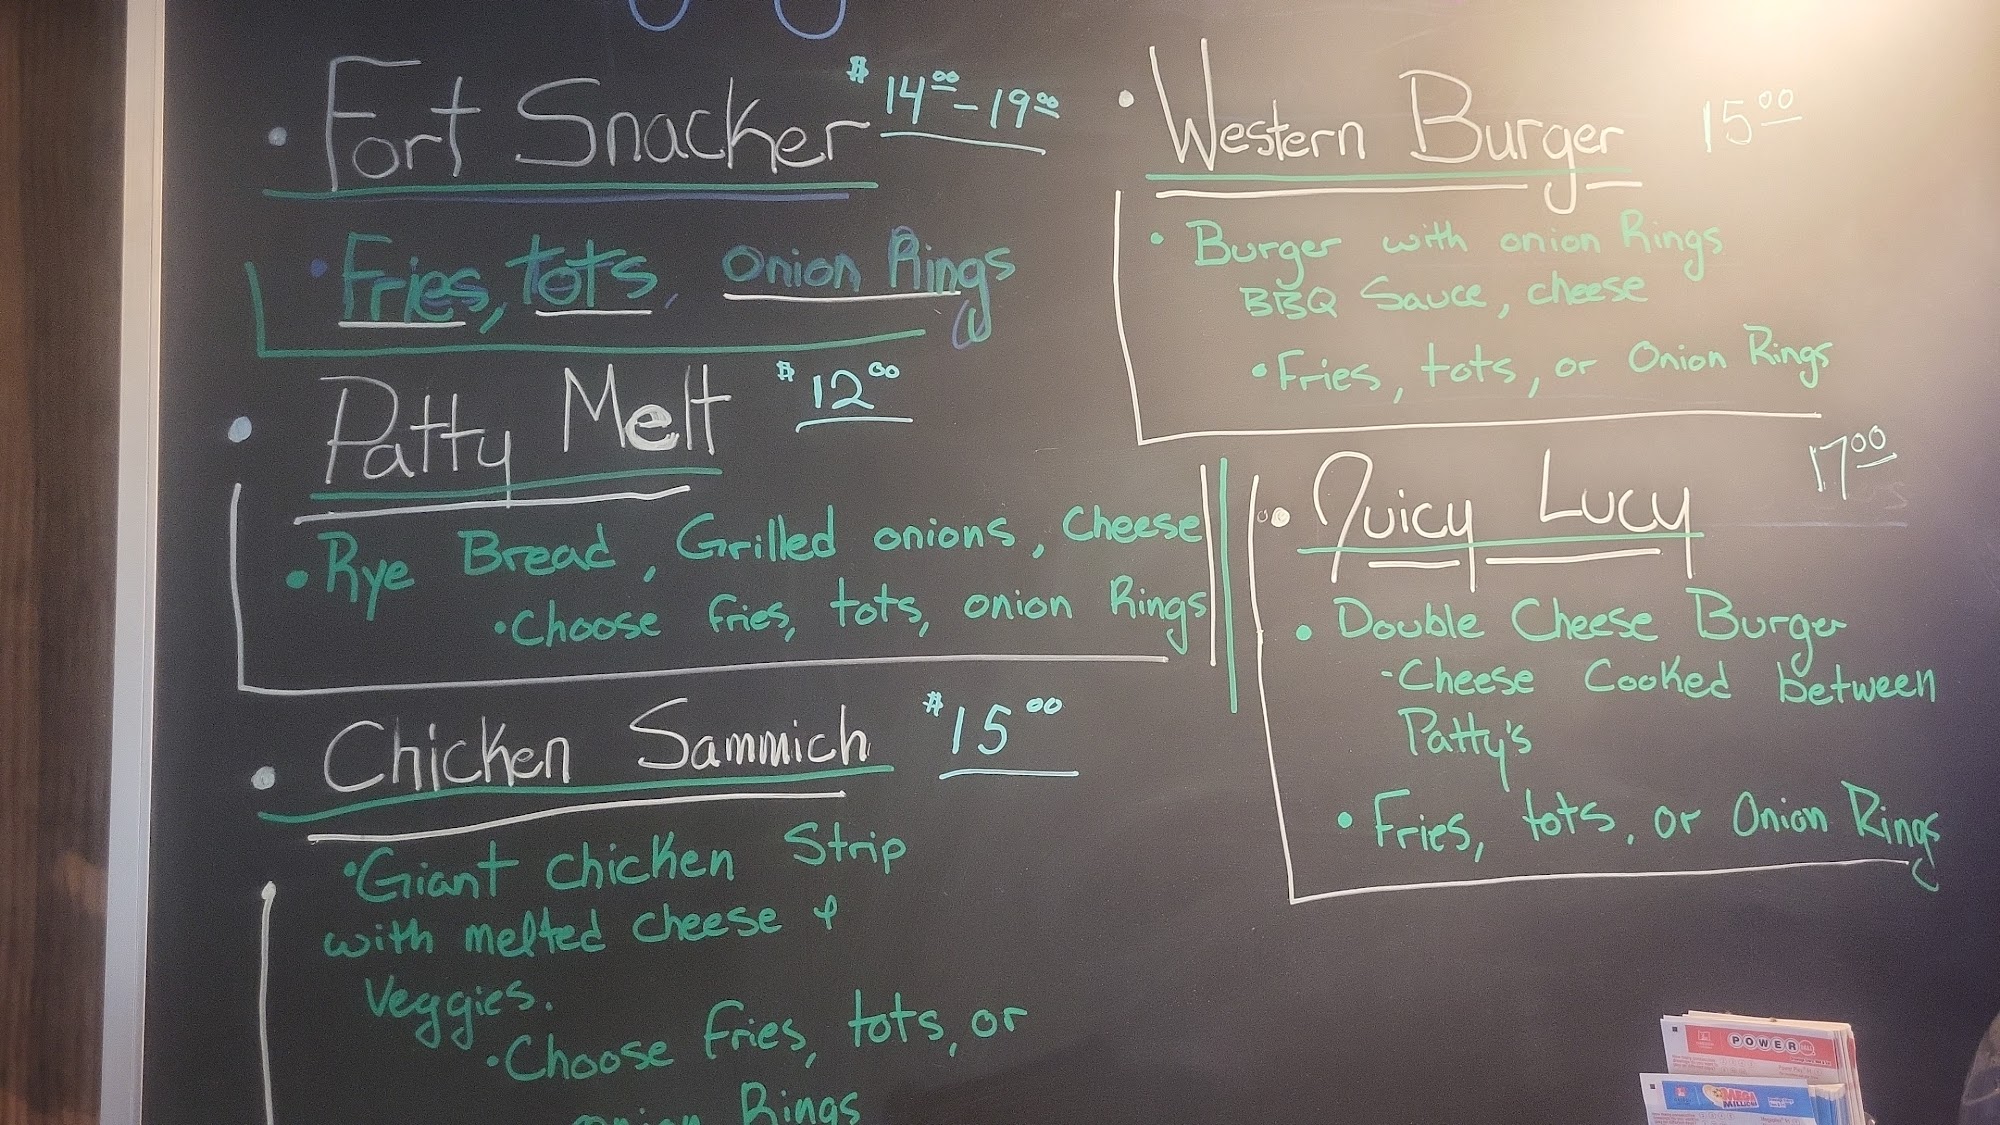 • Fort Snacker $14⁰⁰-19⁰⁰
• Fries, tots, onion Rings
• Patty Melt $12⁰⁰
• Rye Bread, Grilled onions, Cheese
• Choose fries, tots, onion Rings
• Chicken Sammich $15⁰⁰
• Giant Chicken Strip
with melted cheese &
Veggies.
• Choose fries, tots, or
onion Rings
• Western Burger 15⁰⁰
• Burger with onion Rings
BBQ Sauce, cheese
• Fries, tots, or Onion Rings
• Juicy Lucy 17⁰⁰
• Double Cheese Burger
- Cheese Cooked between
Patty's
• Fries, tots, or Onion Rings
POWER
MEGA
MILLIONS